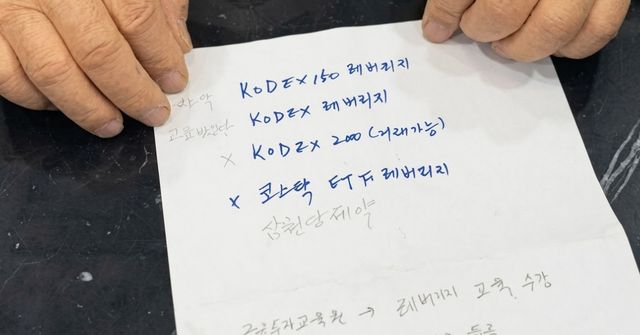 KODEX 150 레버리지
KODEX 레버리지
x KODEX 200 (거래가능)
x 코스닥 ETF 레버리지
삼천당제약
금융투자교육원 → 레버리지 교육 수강
→ 등록